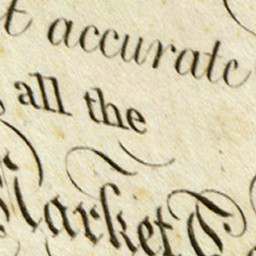 t accurate
all the
Market T